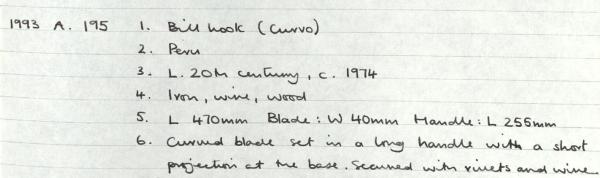 1993 A. 195 1. Bill hook (curvo)
2. Peru
3. L. 20th century, c. 1974
4. Iron, wire, wood
5. L 470mm Blade: W 40mm Handle: L 255mm
6. Curved blade set in a long handle with a short
projection at the base. Secured with rivets and wire.